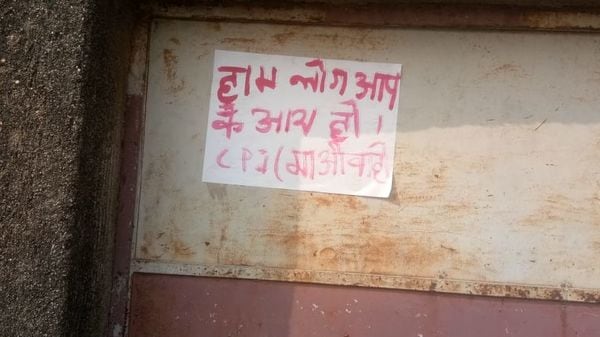 हाम लोग आप
के आय ही ।
CPI (माओवादी